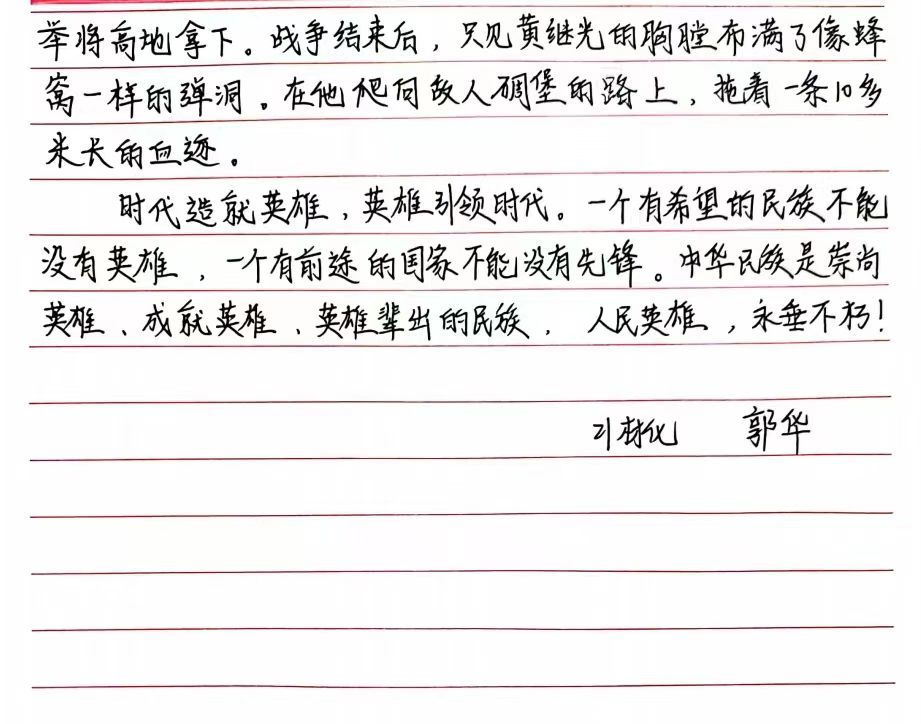 举将高地拿下。战争结束后，只见黄继光的胸膛布满了像蜂
窝一样的弹洞。在他爬向敌人碉堡的路上，拖着一条10多
米长的血迹。
时代造就英雄，英雄引领时代。一个有希望的民族不能
没有英雄，一个有前途的国家不能没有先锋。中华民族是崇尚
英雄、成就英雄、英雄辈出的民族，人民英雄，永垂不朽！
郭华